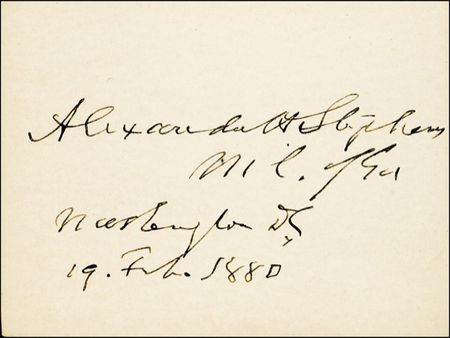 Alexander H Stephens
M. C. of Ga
Washington D.C.
19. Feb. 1880